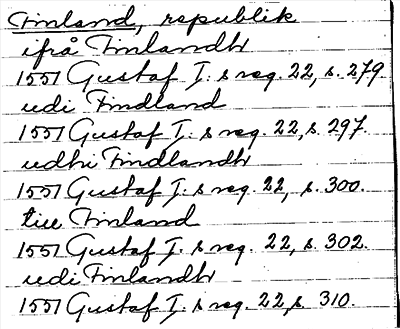 Finland, republik
ifrå Finlandh
1551 Gustaf I:s reg. 22, s. 279.
udi Findland
1551 Gustaf I:s reg. 22, s. 297.
udhi Findlandh
1551 Gustaf I:s reg. 22, s. 300.
till Finland
1551 Gustaf I:s reg. 22, s. 302.
udi Finlandh
1551 Gustaf I:s reg. 22, s. 310.